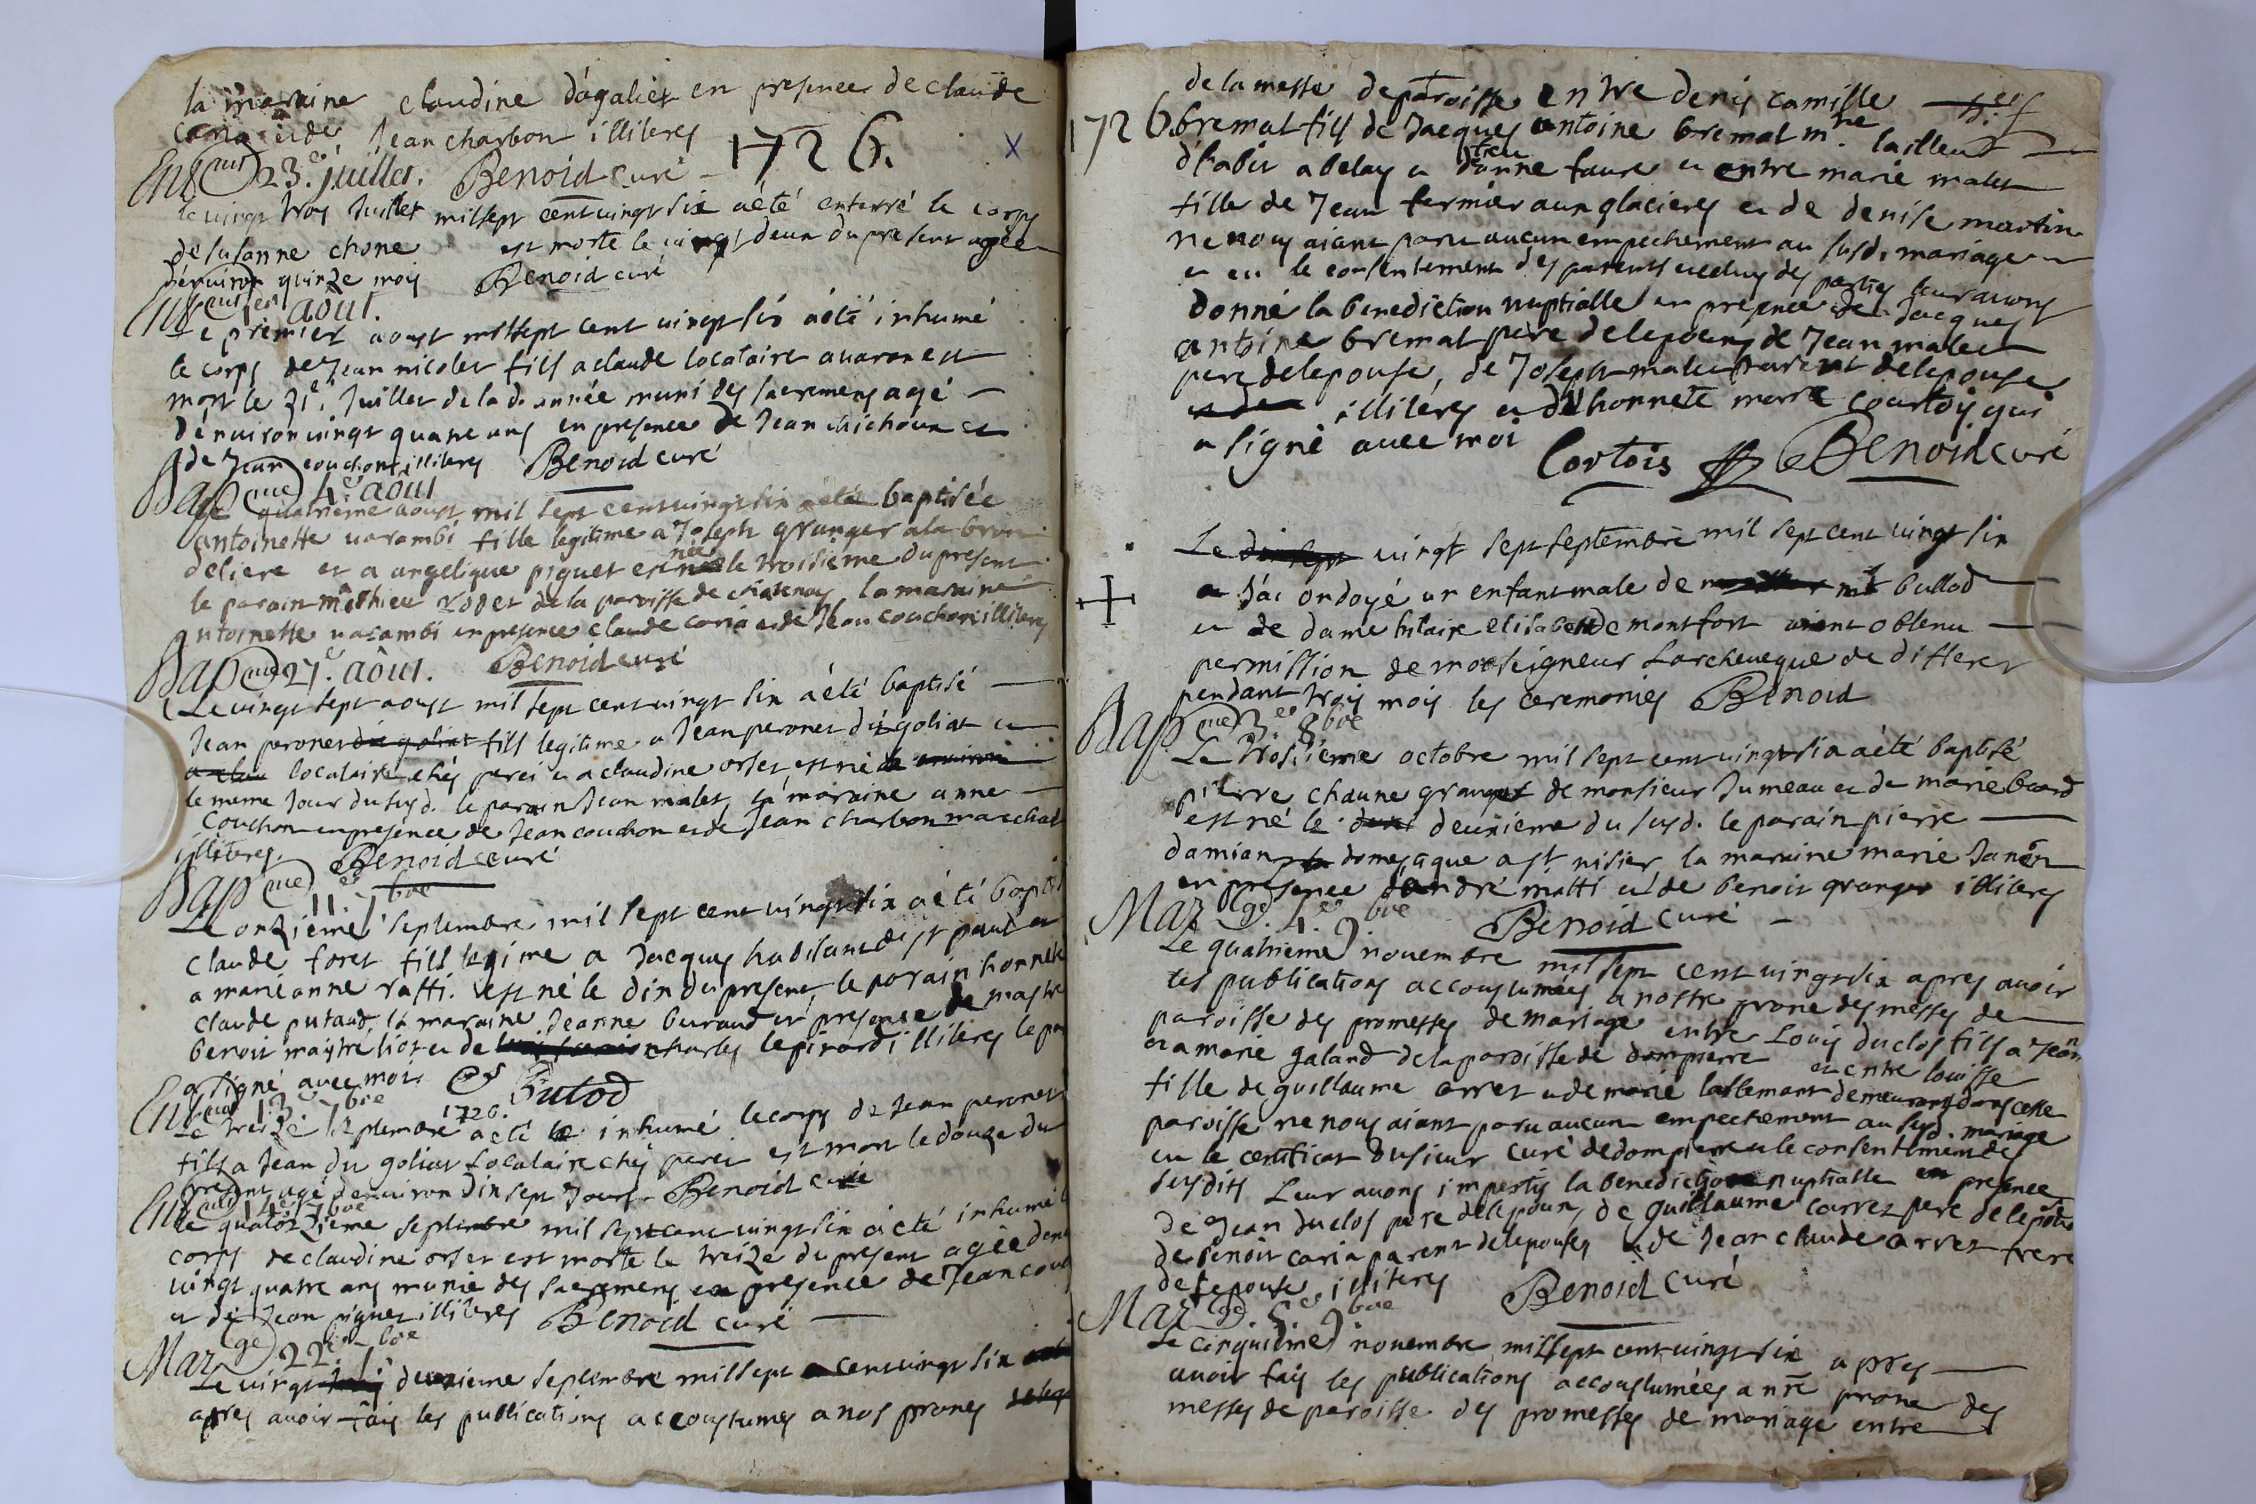 la maraine claudine dagalier en presence de claude
caria et de Jean charbon illiteres
1726.
Ent 23.e juillet. Benoid curé
le vingt troy Juillet mil sept cent vingt six a été enterré le corps
de susanne chone est morte le vingt deux du present agée
d'environ quinze mois Benoid curé
Ent 1er aout.
Le premier aoust mil sept cent vingt six a été inhumé
le corps de Jean nicolet fils a claude locataire a
mort le 31e. Juillet de la d. année muni des sacremens agé
d'environ vingt quatre ans en presence de Jean michoux et
de Jean couchon illiteres Benoid curé
Bap 4.e aout
Le quatrieme aoust mil sept cent vingt six a été baptisée
antoinette varambi fille legitime a Joseph granger a la bron
deliere et a angelique piquet est née le troisieme du present
le parain mathieu de la paroisse de chatenay la maraine
antoinette varambi en presence claude caria et de Jean couchon illiteres
Bap 27.e aôut. Benoid curé
Le vingt sept aoust mil sept cent vingt six a été baptisé
Jean peronet fils legitime a Jean peronet dit goliat et
locataire chés perei et a claudine orset, est né
le meme Jour du susd. le parain Jean malet, la maraine anne
couchon en presence de Jean couchon et de Jean charbon marechal
illiteres. Benoid curé
Bap 11.e 7bre
Le onzieme septembre mil sept cent vingt six a été bapti
claude foret fils legime a Jacques habitant de st paul et
a marie anne raffi. est né le dix du present, le parain honnete
claude putaud, la maraine Jeanne buraud en presence de
benoit maystre liot et de charles lepirardi illiteres le pa
a signé avec moi. Putod
Ent 13e 7bre 1726.
Le treize septembre a été inhumé le corps de Jean peronet
fils a Jean du goliat Locataire chés perei est mort le douze du
present agé denviron dix sept Jours. Benoid curé
Ent 14e 7bre
Le quatorzieme septembre mil sept cent vingt six a été inhumé l
corps de claudine orset est morte le treize du present agée denv
vingt quatre ans munie des sacremens en presence de Jean couch
et de Jean piquet illiteres Benoid curé
Marge 22.e 7bre
Le vingt deuxieme septembre mil sept cent vingt six
apres avoir fais les publications accoustumes a nos prones
de la messe de paroisse entre denis camille
1726. bremal fils de Jacques antoine bremal mtre tailleur
d'habit a belay et d'etiennne faure et entre marie malet
fille de Jean fermier aux glacieres et de denise martin
ne nous aiant paru aucun empechement au susd. mariage
et eu le consentement des parents et celuy des parties leur avons
donné la benediction nuptialle en presence de Jacques
antoine bremal pere de lepoux, de Jean malet
pere de lepouse, de Joseph malet parent de lepouse
illiteres et d'honnete marc courtois qui
a signé avec moi Cortois Benoid curé
Le vingt sept septembre mil sept cent vingt six
a été ondoyé un enfant male de mr bullod
et de dame hilaire elisabeth de montfort aiant obtenu
permission de monseigneur Larcheveque de differer
pendant trois mois les ceremonies Benoid
Bap 3e 8bre
Le troisieme octobre mil sept cent vingt six a été baptisé
pierre chaune granger de monsieur Jumeau et de marie buard
est né le deuxieme du susd. le parain pierre
damian domestique a st nisier la maraine marie Janon
en presence d'andré matti et de benoit granger illiteres
Marge 4.e 9bre Benoid curé
Le quatrieme novembre mil sept cent vingt six apres avoir
les publications accoustumées a nostre prone des messes de
paroisse des promesses de mariage entre Louis duclos fils a Jean
et a marie galand de la paroisse de dompierre et entre louisse
fille de guillaume arret et de marie lallemant demeurants dans cette
paroisse ne nous aiant paru aucun empechement au susd. mariage
eu le certificat du sieur curé de dompierre et le consentement des
susdits Leur avons impertis la benediction nuptialle en presence
de Jean duclos pere de lepoux, de guillaume carret pere de lepouse
de benoit caria parent de lepouse et de Jean claude arret frere
de lepouse illiteres Benoid curé
Marge 5.e 9bre
Le cinquieme novembre mil sept cent vingt six apres
avoir fais les publications accoustumées a nre prone des
messes de paroisse des promesses de mariage entre